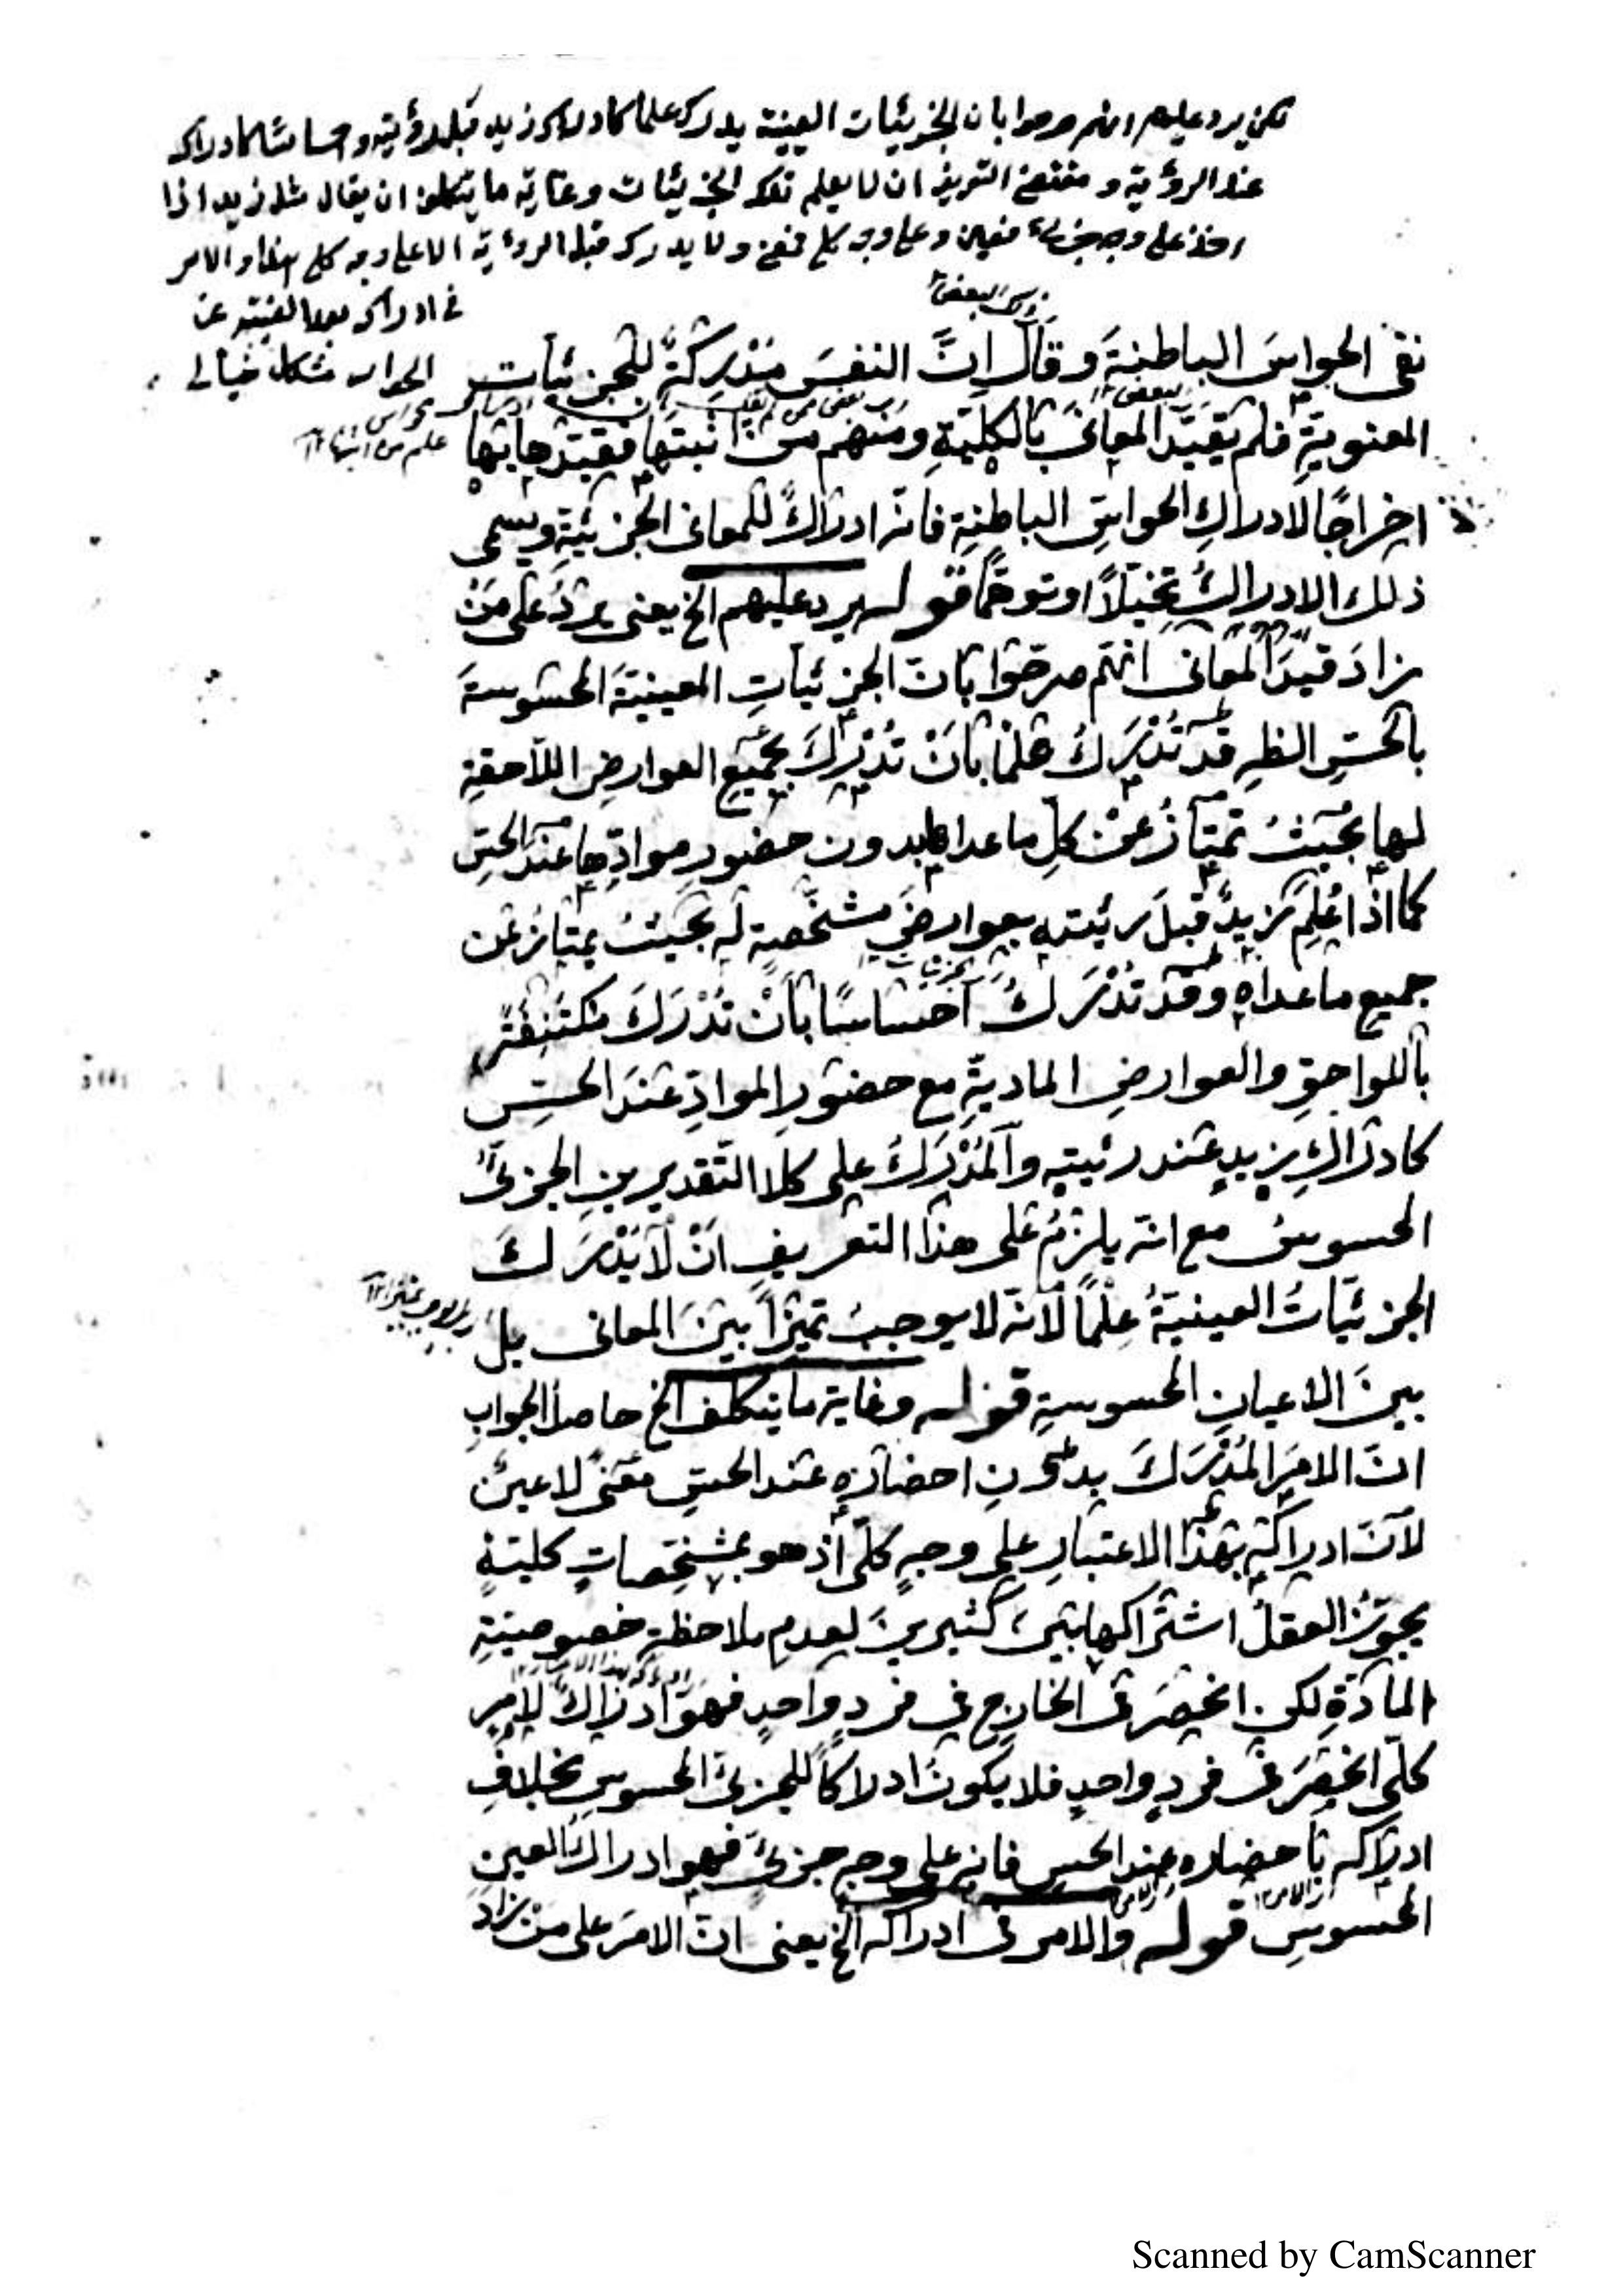 لكن يرد عليهم انهم صرحوا بان الجزئيات العينية يدرك علما كادراك زيد قبل رؤيته واحساسا كادراك
عند الرؤية و مقتضى التعريف ان لا يعلم تلك الجزئيات وغاية ما يتكلف ان يقال مثل زيد اذا
اخذ على وجه جزئي فعين وعلى وجه كلي فمعنى ولا يدرك قبل الرؤية الا على وجه كلي هذا والامر
في ادراكه بعد الغيبة عن
الحواس مشكل خيالي
اى البعض
نفى الحواسَ الباطنيةَ وقال انَّ النفسَ مُدْرِكَةٌ للجزئيات
المعنويةِ فلم يقيّد المعانىَ بالكليّةِ ومنهم من اثبتها فقيّدها بها
اخراجًا لادراكِ الحواسِّ الباطنيةِ فانه ادراكٌ للمعانى الجزئيّةِ ويسمى
ذلك الادراكُ تخيّلاً او توهّمًا قوله يرد عليهم الخ يعنى يردُ على مَنْ
زادَ قيدَ المعانى انّهم صرّحوا بانّ الجزئياتِ العينيةَ المحسوسةَ
بالحسّ الظهِ قد تُدْرَكُ علمًا بانْ تُدْرَكَ بجميعِ العوارضِ اللّاحقةِ
لها بحيثُ تمتازُ عنْ كلِّ ما عداها بدونِ حضورِ موادِّها عند الحسِّ
كما اذا عُلِمَ زيدٌ قبلَ رئيته بعوارضَ مشخّصةٍ له بحيثُ يمتازُ عن
جميع ما عداه وقد تُدْرَكُ احساسًا بانْ تُدْرَكَ مكتنِفةً
باللواحقِ والعوارضِ الماديةِّ مع حضورِ الموادِّ عندَ الحسِّ
كادراكِ زيدٍ عند رئيتِه والمُدْرَكُ على كلا التّقديرينِ الجزئىُّ
المحسوسُ مع انّه يلزمُ على هذا التعريفِ انْ لا يُدْرَكَ
الجزئيّاتُ العينيةُ عِلْمًا لانّه لا يوجبُ تميّزًا بينَ المعانى بل
بينَ الاعيانِ المحسوسةِ قوله وغاية ما يتكلف الخ حاصلُ الجوابِ
انّ الامرَ المُدْرَكَ بدونِ احضارِه عند الحسّ معنىً لا عينٌ
لانّ ادراكَه بهذا الاعتبارِ على وجهٍ كلّى اذ هو بمشخِّصاتٍ كليةٍ
يجوّزُ العقلُ اشتراكها بينَ كثيرينَ لعدمِ ملاحظةِ خصوصيّةِ
المادّةِ لكن انحصرَ فى الخارج فى فردٍ واحدٍ فهو ادراكٌ لامرٍ
كلّى انحصرَ فى فردٍ واحدٍ فلا يكونُ ادراكًا للجزئىّ المحسوسِ بخلافِ
ادراكه باحضاره عند الحس فانه على وجهٍ جزئىّ فهو ادراكُ العينِ
المحسوسِ قوله والامر فى ادراكه الخ يعنى انّ الامرَ على منْ زادَ
Scanned by CamScanner